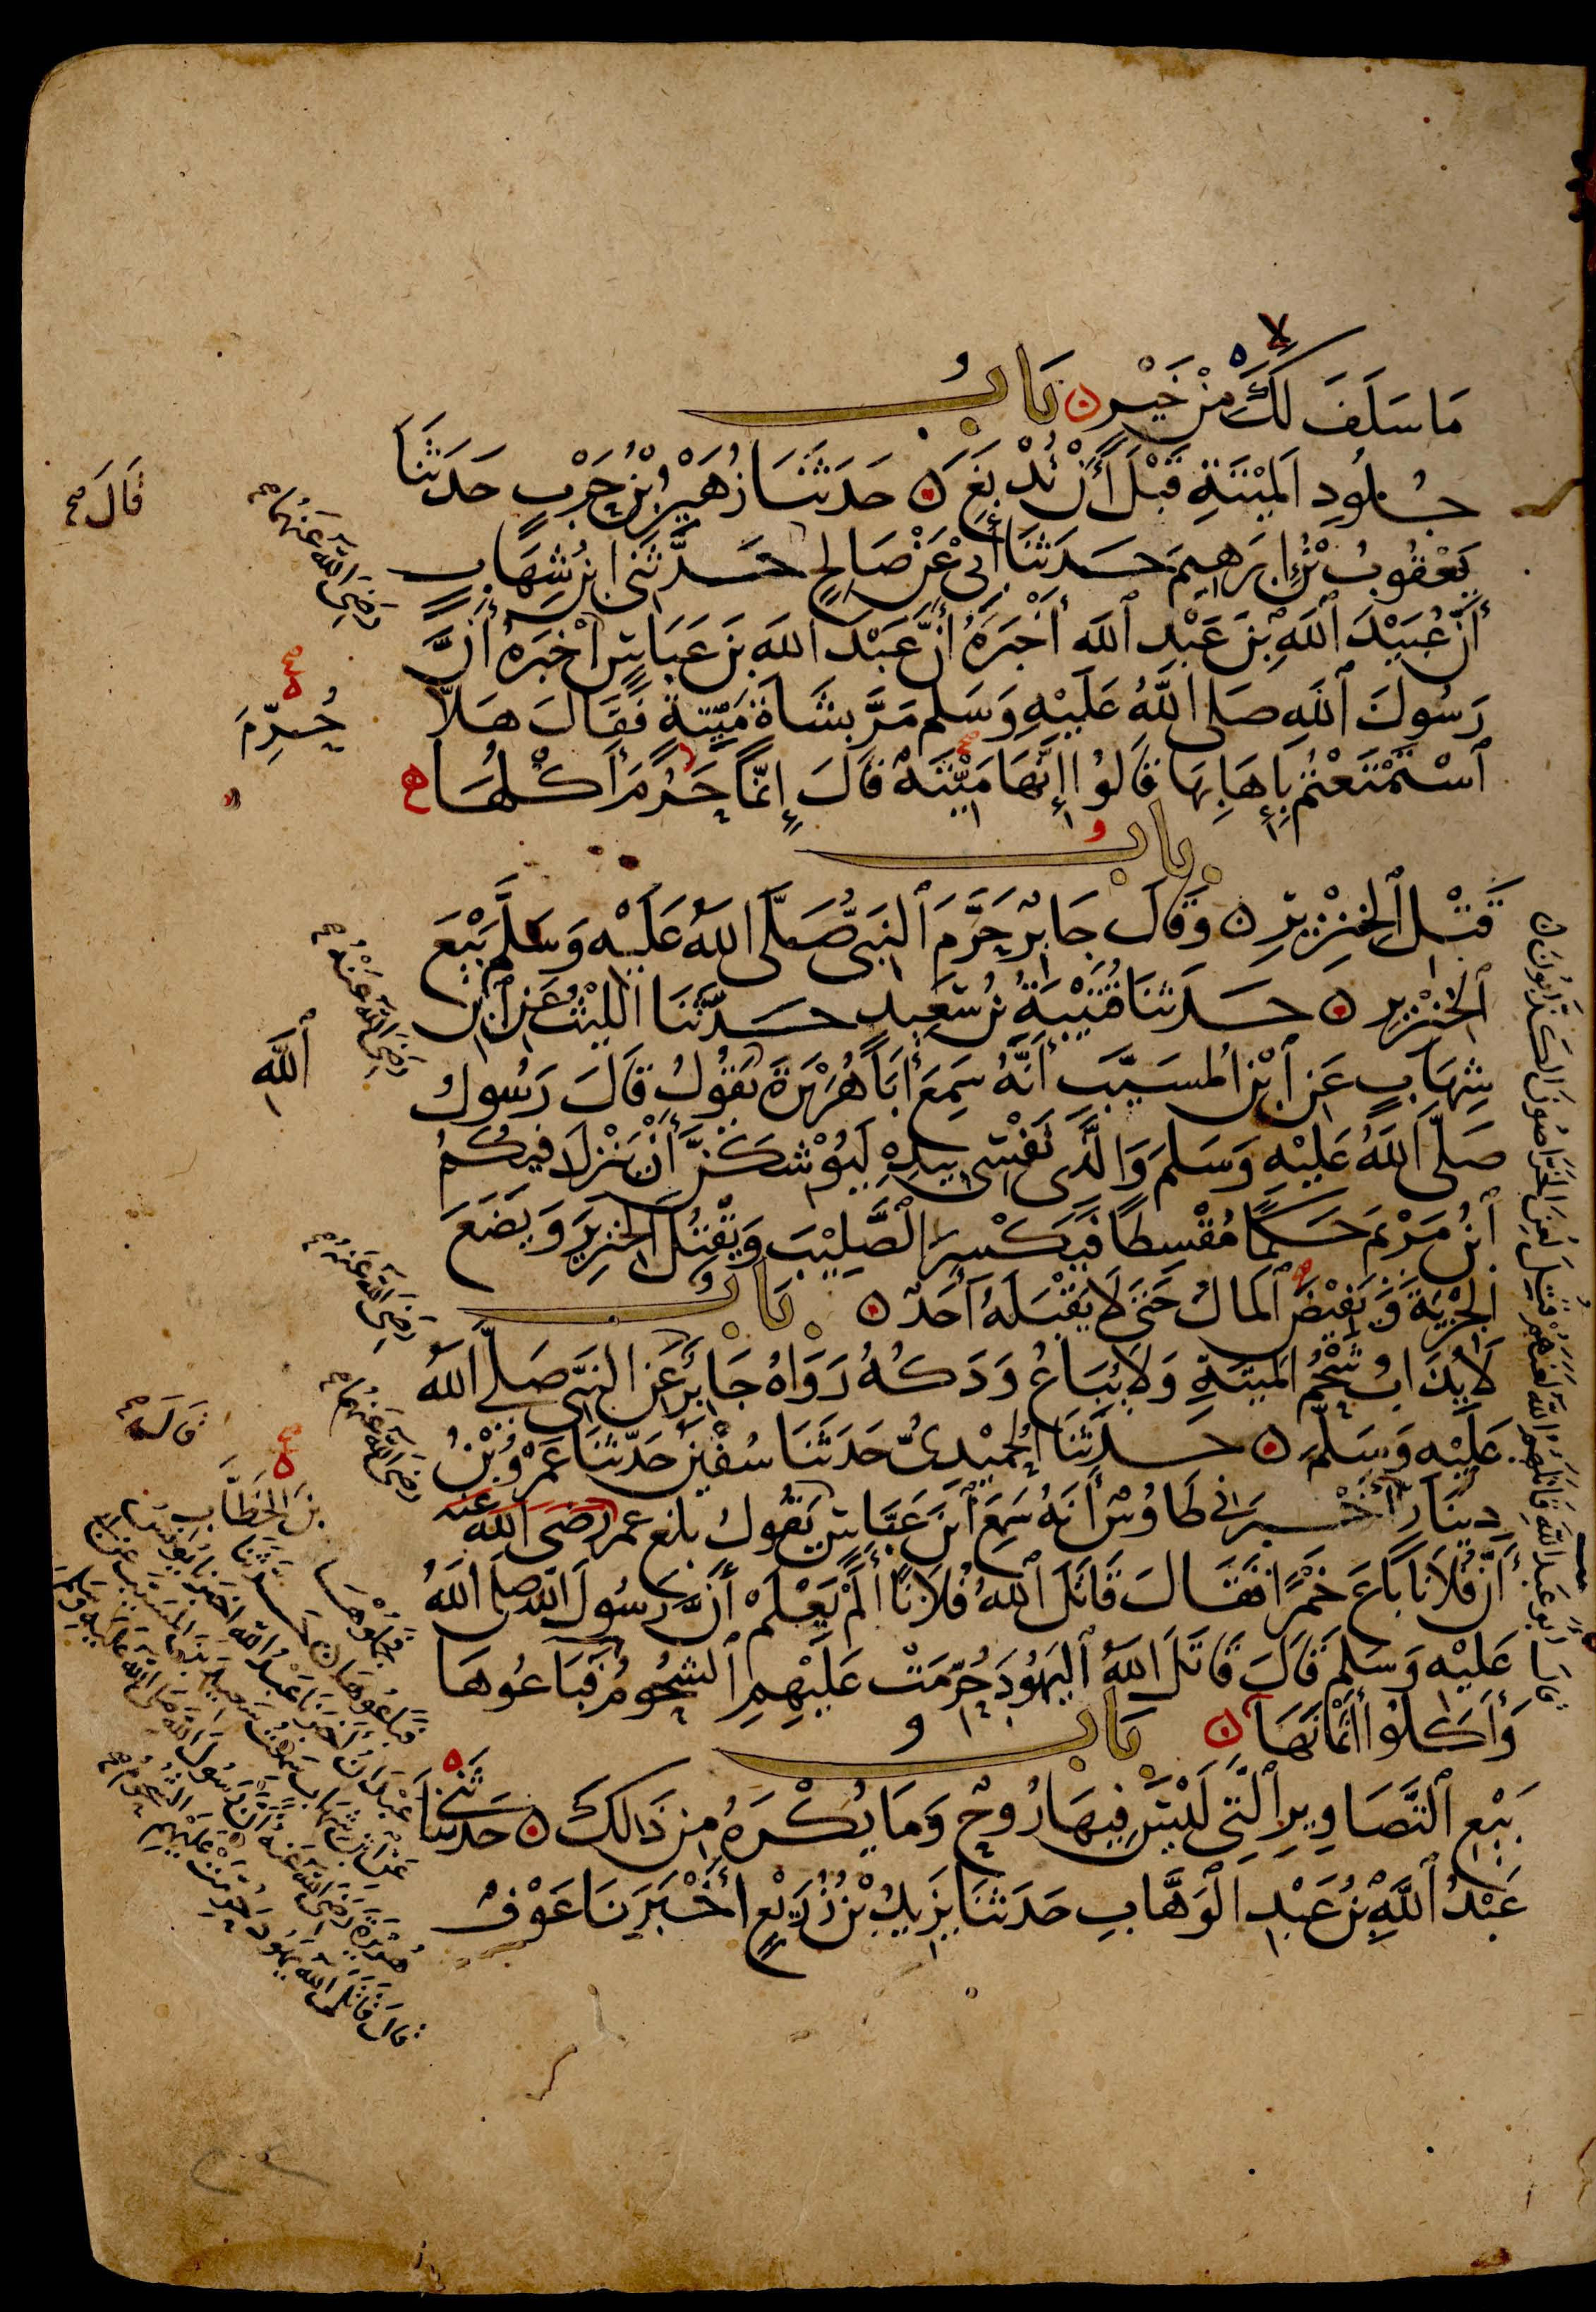 مَا سَلَفَ لَكَ مِنْ خَيْرٍ بَابُ
جُلُودِ المَيْتَةِ قَبْلَ أَنْ تُدْبَغَ حَدَّثَنَا زُهَيْرُ بْنُ حَرْبٍ حَدَّثَنَا
يَعْقُوبُ بْنُ إِبْرَاهِيمَ حَدَّثَنَا أَبِي عَنْ صَالِحٍ حَدَّثَنِي ابْنُ شِهَابٍ
أَنَّ عُبَيْدَ اللَّهِ بْنَ عَبْدِ اللَّهِ أَخْبَرَهُ أَنَّ عَبْدَ اللَّهِ بْنَ عَبَّاسٍ أَخْبَرَهُ أَنَّ
رَسُولَ اللَّهِ صَلَّى اللَّهُ عَلَيْهِ وَسَلَّمَ مَرَّ بِشَاةٍ مَيِّتَةٍ فَقَالَ هَلَّا
اسْتَمْتَعْتُمْ بِإِهَابِهَا قَالُوا إِنَّهَا مَيِّتَةٌ قَالَ إِنَّمَا حَرُمَ أَكْلُهَا
بابُ
قَتْلِ الخِنْزِيرِ وَقَالَ جَابِرٌ حَرَّمَ النَّبِيُّ صَلَّى اللَّهُ عَلَيْهِ وَسَلَّمَ بَيْعَ
الخِنْزِيرِ حَدَّثَنَا قُتَيْبَةُ بْنُ سَعِيدٍ حَدَّثَنَا اللَّيْثُ عَنِ ابْنِ
شِهَابٍ عَنِ ابْنِ المُسَيَّبِ أَنَّهُ سَمِعَ أَبَا هُرَيْرَةَ يَقُولُ قَالَ رَسُولُ
صَلَّى اللَّهُ عَلَيْهِ وَسَلَّمَ وَالَّذِي نَفْسِي بِيَدِهِ لَيُوْشِكَنَّ أَنْ يَنْزِلَ فِيكُمْ
ابْنُ مَرْيَمَ حَكَمًا مُقْسِطًا فَيَكْسِرَ الصَّلِيْبَ وَيَقْتُلَ الخِنْزِيرَ وَيَضَعَ
الجِزْيَةَ وَيَفِيْضَ المَالُ حَتَّى لَا يَقْبَلَهُ أَحَدٌ بَابُ
لَا يُذَابُ شَحْمُ المَيْتَةِ وَلَا يُبَاعُ وَدَكُهُ رَوَاهُ جَابِرٌ عَنِ النَّبِيِّ صَلَّى اللَّهُ
عَلَيْهِ وَسَلَّمَ حَدَّثَنَا الحُمَيْدِيُّ حَدَّثَنَا سُفْيٰنُ حَدَّثَنَا عَمْرُو بْنُ
دِينَارٍ أَخْبَرَنِي طَاوُسٌ أَنَّهُ سَمِعَ ابْنَ عَبَّاسٍ يَقُولُ بلغ عمر رضى الله عنه
أَنَّ فُلَانًا بَاعَ خَمْرًا فَقَالَ قَاتَلَ اللَّهُ فُلَانًا أَلَمْ يَعْلَمْ أَنَّ رَسُولَ اللَّهِ صَلَّى اللَّهُ
عَلَيْهِ وَسَلَّمَ قَالَ قَاتَلَ اللَّهُ اليَهُودَ حُرِّمَتْ عَلَيْهِمِ الشُّحُومُ فَبَاعُوهَا
وَأَكَلُوا أَثْمَانَهَا بَابُ
بَيْعِ التَّصَاوِيرِ الَّتِي لَيْسَ فِيهَا رُوْحٌ وَمَا يُكْرَهُ مِنْ ذَالِكَ حَدَّثَنَا
عَبْدُ اللَّهِ بْنُ عَبْدِ الوَهَّابِ حَدَّثَنَا يَزِيدُ بْنُ زُرَيْعٍ أَخْبَرَنَا عَوْفٌ
قَالَ صح
رَضِيَ اللَّهُ عَنْهُمَا صح
حُرِّمَ
رَضِيَ اللَّهُ عَنْهُ صح
اللَّهِ
رَضِيَ اللَّهُ عَنْهُ صح
رَضِيَ اللَّهُ عَنْهُمَا صح
قَالَ صح
بْنَ الخَطَّابِ
فَجَمَلُوْهَا
فَبَاعُوهَا حَدَّثَنَا
عَبْدَانُ أَخْبَرَنَا عَبْدُ اللَّهِ أَخْبَرَنَا يُونُسُ
عَنِ ابْنِ شِهَابٍ سَمِعْتُ سَعِيدَ بْنَ المُسَيَّبِ عَنْ أَبِي
هُرَيْرَةَ رَضِيَ اللَّهُ عَنْهُ أَنَّ رَسُولَ اللَّهِ صَلَّى اللَّهُ عَلَيْهِ وَسَلَّمَ
قَالَ قَاتَلَ اللَّهُ يَهُودَ حُرِّمَتْ عَلَيْهِمِ الشُّحُومُ صح
قال أبو عبد الله قَاتَلَهُمُ اللَّهُ لَعَنَهُمْ قُتِلَ لُعِنَ الخَرَّاصُونَ الكَذَّابُونَ